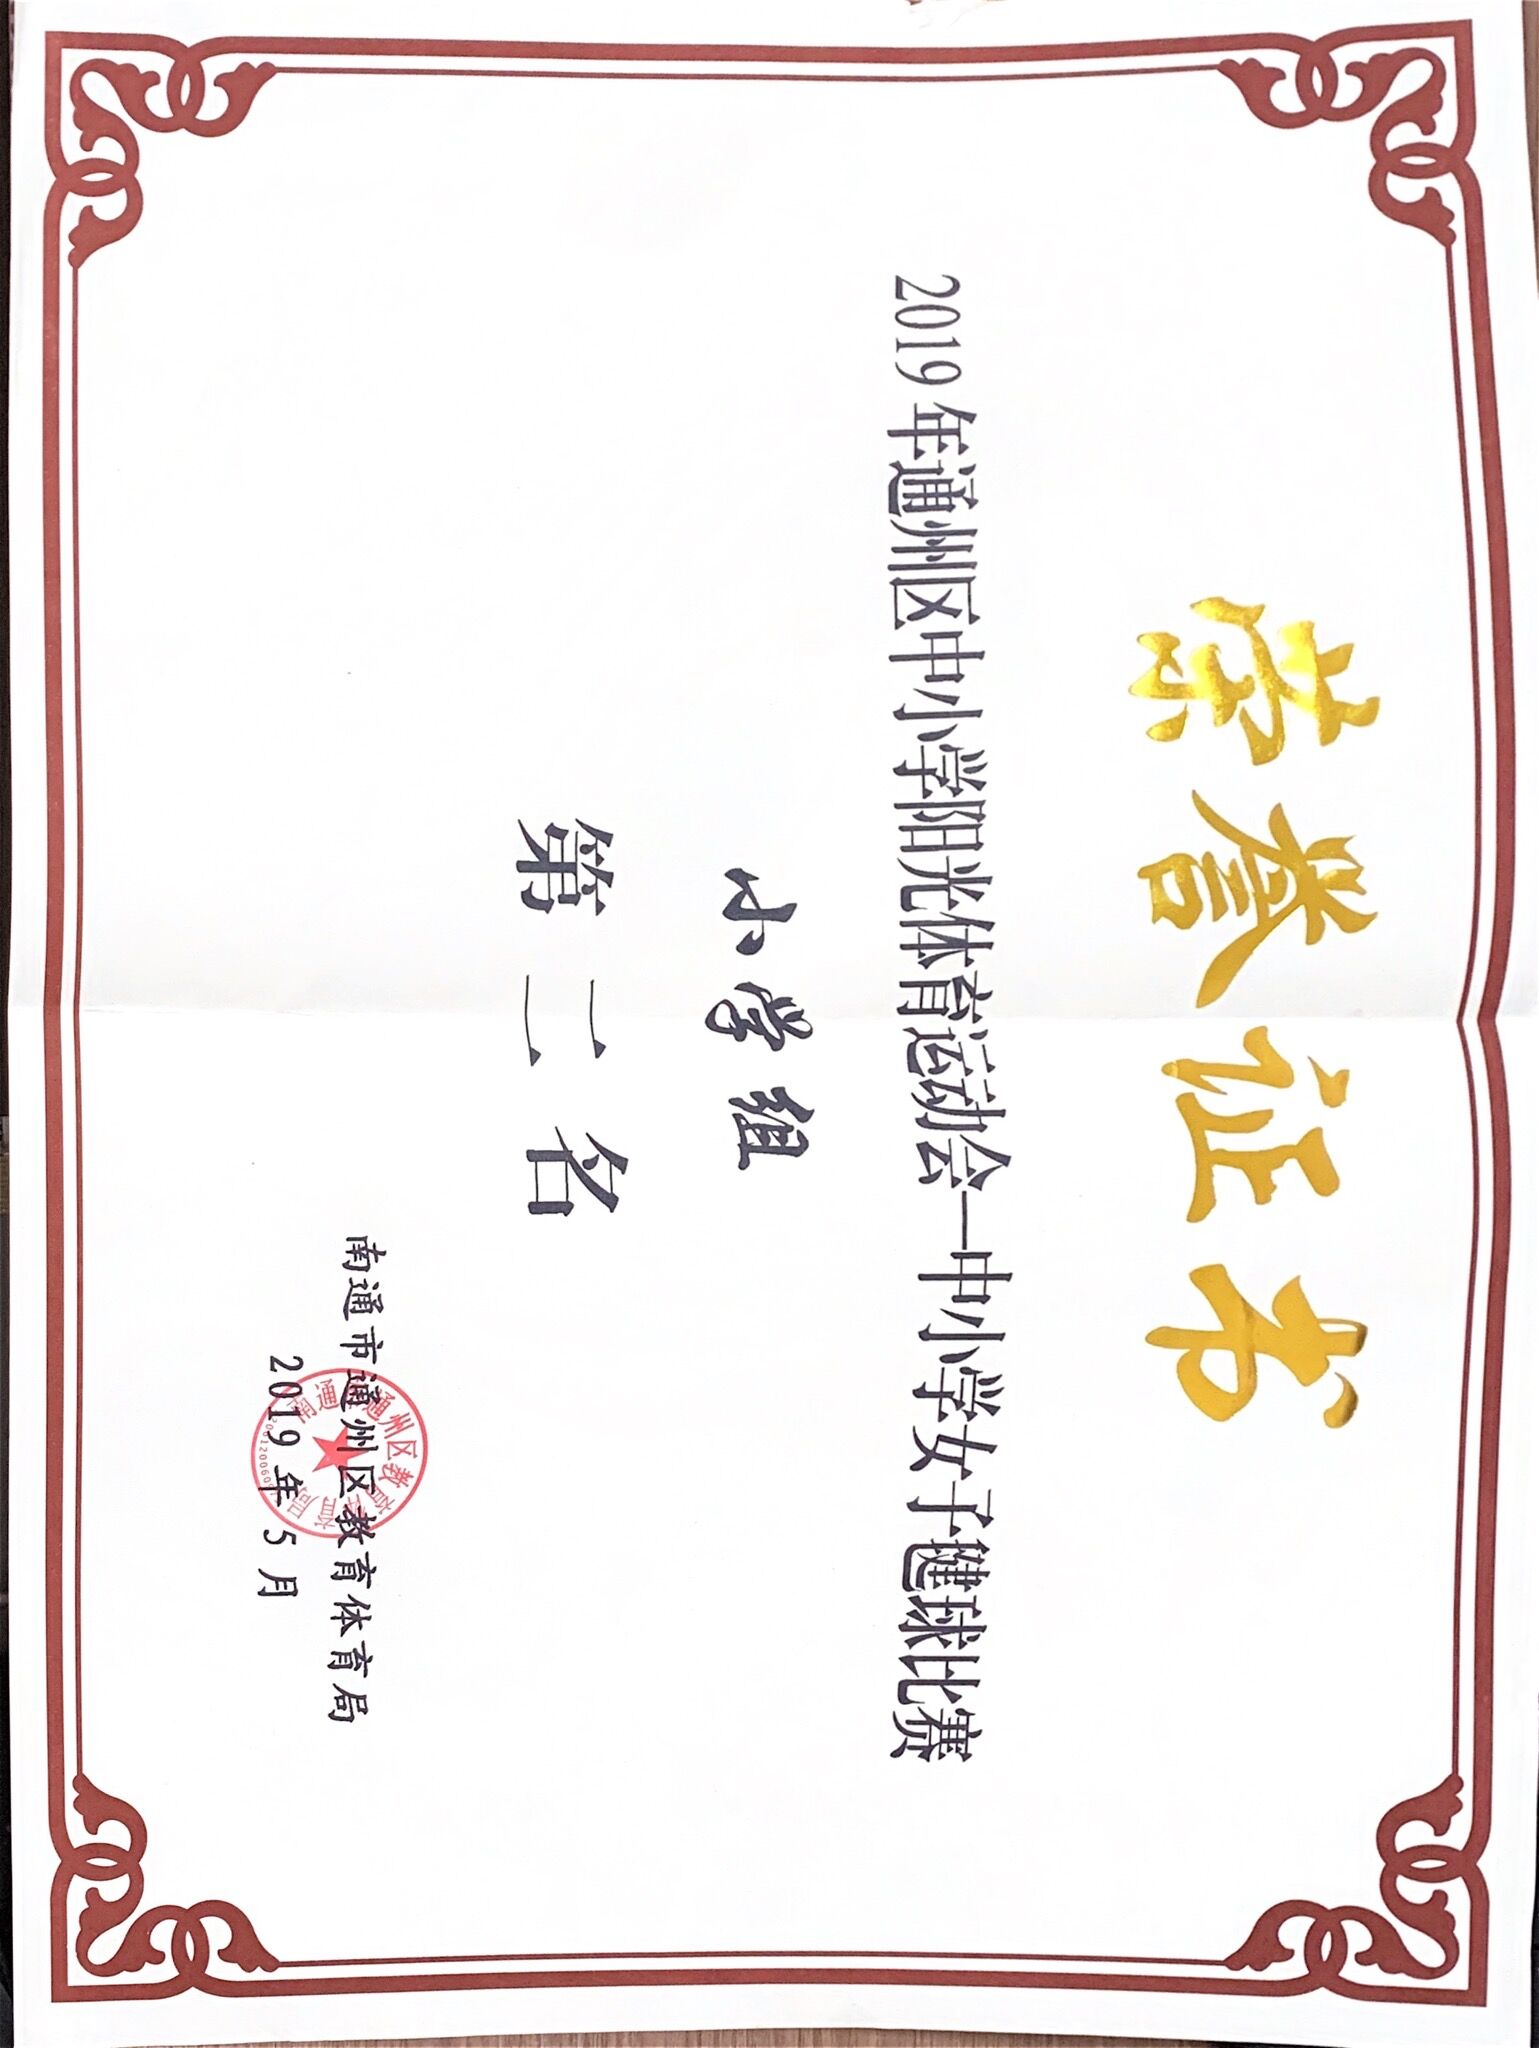 荣誉证书
2019年通州区中小学阳光体育运动会—中小学女子毽球比赛
小学组
第二名
南通市通州区教育体育局
2019年5月
南通市通州区教育体育局